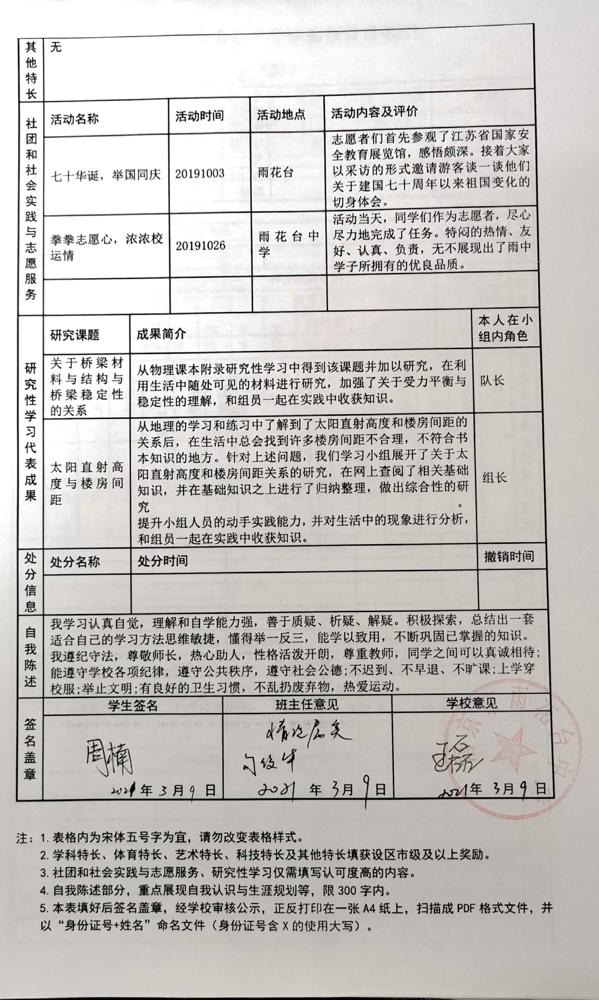 其他特长
无
社团和社会实践与志愿服务
活动名称 活动时间 活动地点 活动内容及评价
七十华诞，举国同庆 20191003 雨花台
志愿者们首先参观了江苏省国家安
全教育展览馆，感悟颇深。接着大家
以采访的形式邀请游客谈一谈他们
关于建国七十周年以来祖国变化的
切身体会。
拳拳志愿心，浓浓校
运情
20191026
雨花台中
学
活动当天，同学们作为志愿者，尽心
尽力地完成了任务。特闷的热情、友
好、认真、负责，无不展现出了雨中
学子所拥有的优良品质。
研究性学习代表成果
研究课题 成果简介
本人在小
组内角色
关于桥梁材
料与结构与
桥梁稳定性
的关系
从物理课本附录研究性学习中得到该课题并加以研究，在利
用生活中随处可见的材料进行研究，加强了关于受力平衡与
稳定性的理解，和组员一起在实践中收获知识。
队长
太阳直射高
度与楼房间
距
从地理的学习和练习中了解到了太阳直射高度和楼房间距的
关系后，在生活中总会找到许多楼房间距不合理，不符合书
本知识的地方。针对上述问题，我们学习小组展开了关于太
阳直射高度和楼房间距关系的研究，在网上查阅了相关基础
知识，并在基础知识之上进行了归纳整理，做出综合性的研
究。
提升小组人员的动手实践能力，并对生活中的现象进行分析，
和组员一起在实践中收获知识。
组长
处分信息
处分名称 处分时间 撤销时间
自我陈述
我学习认真自觉，理解和自学能力强，善于质疑、析疑、解疑。积极探索，总结出一套
适合自己的学习方法思维敏捷，懂得举一反三，能学以致用，不断巩固已掌握的知识。
我遵纪守法，尊敬师长，热心助人，性格活泼开朗，尊重教师，同学之间可以真诚相待;
能遵守学校各项纪律，遵守公共秩序，遵守社会公德;不迟到、不早退、不旷课;上学穿
校服;举止文明;有良好的卫生习惯，不乱扔废弃物，热爱运动。
签名盖章
学生签名 班主任意见 学校意见
周楠
情况属实
2021年3月9日 2021年3月9日 2021年3月9日
注：1.表格内为宋体五号字为宜，请勿改变表格样式。
2.学科特长、体育特长、艺术特长、科技特长及其他特长填获设区市级及以上奖励。
3.社团和社会实践与志愿服务、研究性学习仅需填写认可度高的内容。
4.自我陈述部分，重点展现自我认识与生涯规划等，限300字内。
5.本表填好后签名盖章，经学校审核公示，正反打印在一张A4纸上，扫描成PDF格式文件，并
以“身份证号+姓名”命名文件（身份证号含X的使用大写）。